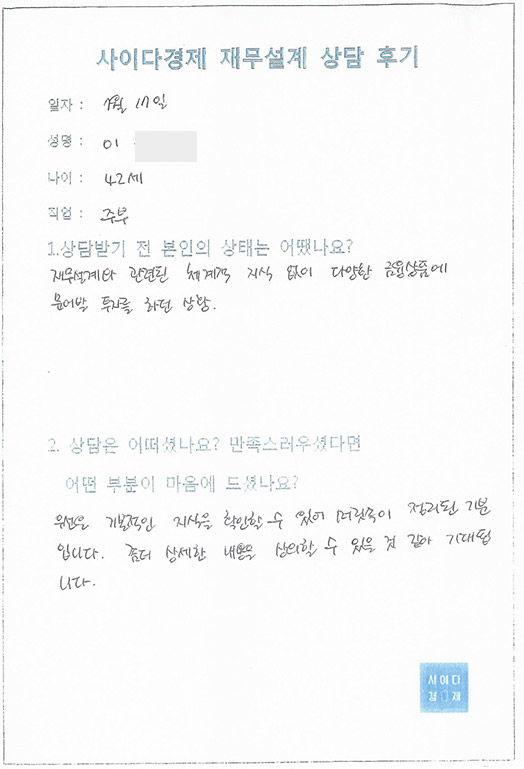 사이다경제 재무설계 상담 후기
일자 : 1월 17일
성명 : 이
나이 : 42세
직업 : 주부
1.상담받기 전 본인의 상태는 어땠나요?
재무설계와 관련된 체계적 지식 없이 다양한 금융상품에
문어발 투자를 하던 상황.
2. 상담은 어떠셨나요? 만족스러우셨다면
어떤 부분이 마음에 드셨나요?
우선은 기본적인 지식을 확인할 수 있어 머릿속이 정리된 기분
입니다. 좀더 상세한 내용을 상의할 수 있을 것 같아 기대됩
니다.
사이다
경제